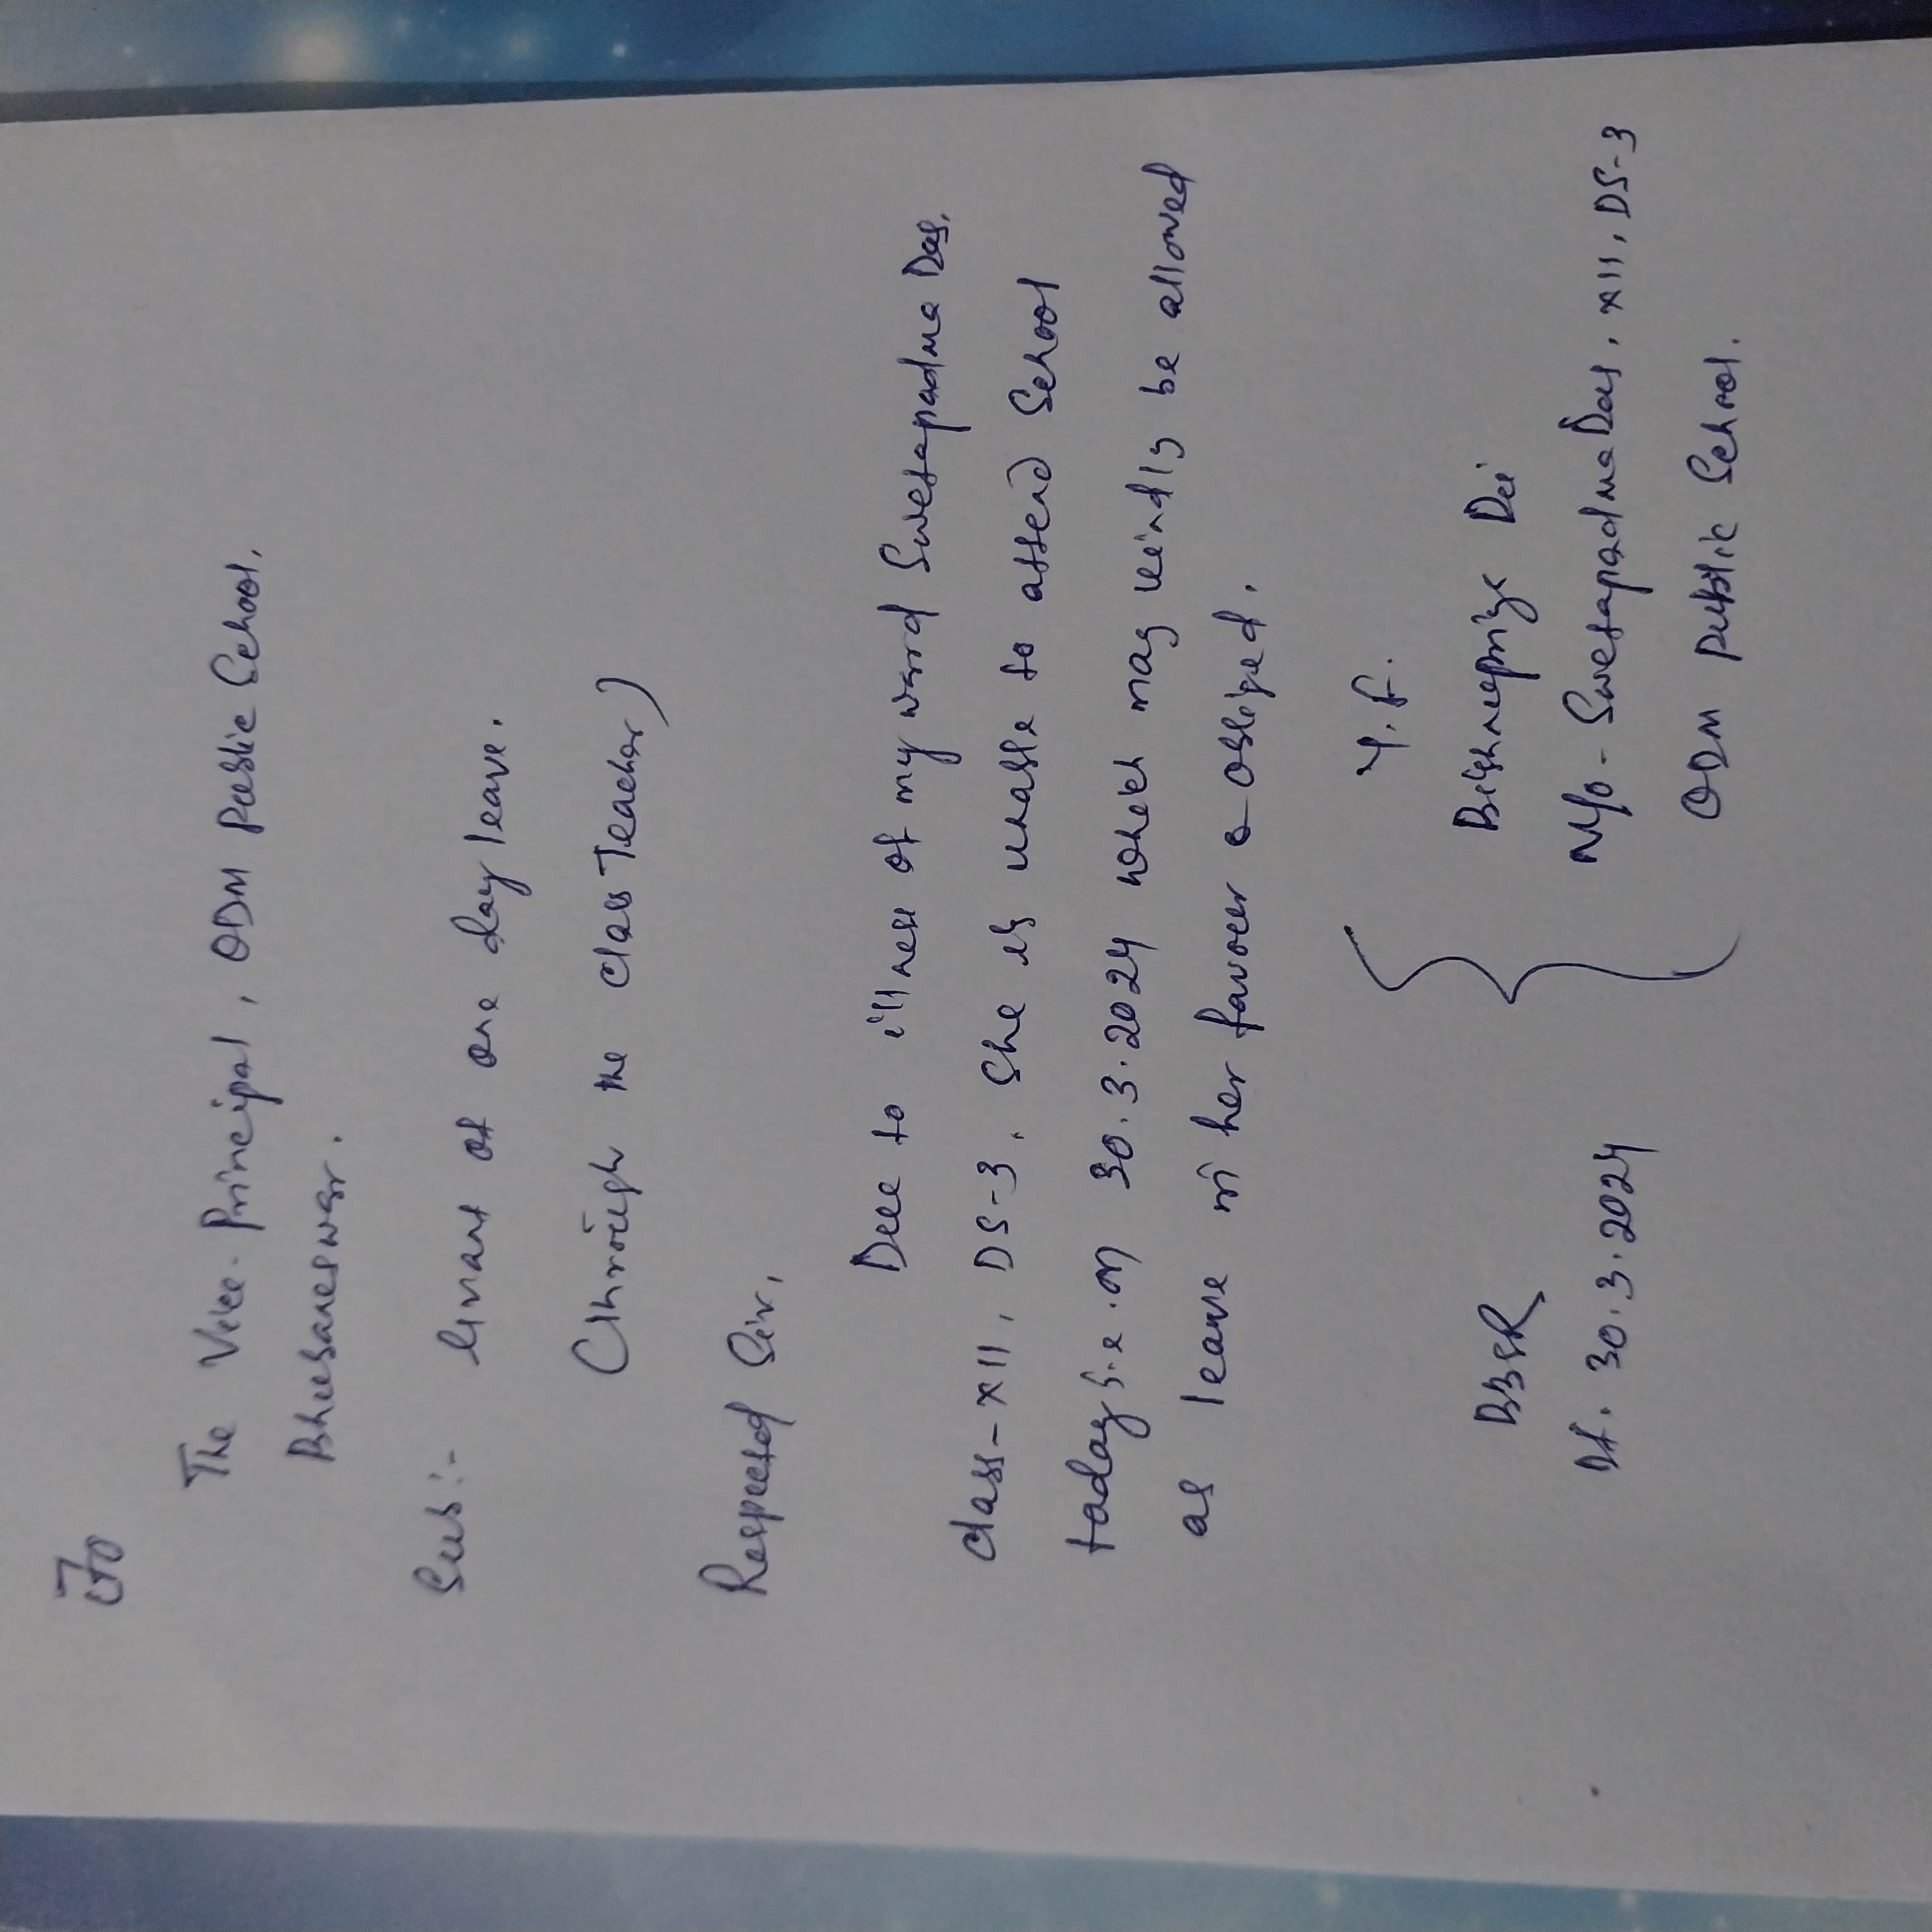 To
The Vice-Principal, ODM Public School,
Bhubaneswar.
Sub:- Grant of one day leave.
(Through the Class Teacher)
Respected Sir,
Due to illness of my ward Swetapadma Das,
Class-XII, DS-3, She is unable to attend School
today i.e. on 30.3.2024 which may kindly be allowed
as leave in her favour & obliged.
Y.F.
BBSR
Bishnupriya Dei
Dt. 30.3.2024
M/o - Swetapadma Das, XII, DS-3
ODM Public School.